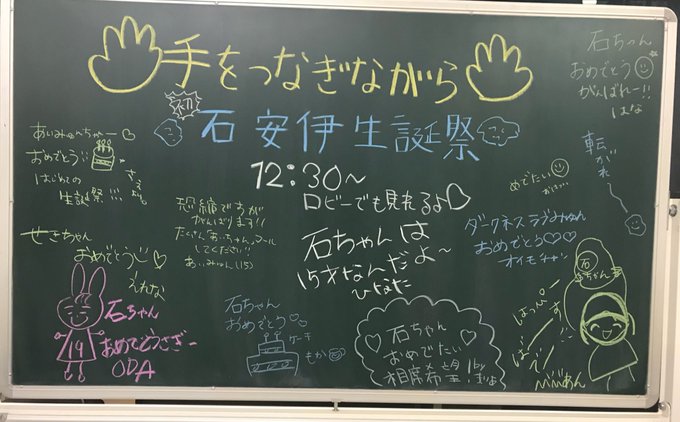 手をつなぎながら
初
石安伊生誕祭
12:30〜
ロビーでも見れるよ♡
石ちゃん
おめでとう
がんばれー!!
はな
あいみゅぺちゃー♡
おめでとう
はじめての
生誕祭!!!
せきちゃん
おめでとう
えれな
恐縮ですが
がんばります!!
たくさんあっちゃんコール
してください!!
あいみゅん(15)
石ちゃんは
15才なんだよ〜
ひなた
転がれー
めでたい
ダークネスラブみゅん
おめでとう♡♡
オイモチャン
石ちゃん
おめでとうさぎー
ODA
19
石ちゃん
おめでとう
ケーキ
もか
♡石ちゃん♡
おめでたい
相席希望
石ちゃん
はっぴー
ばーすでー!